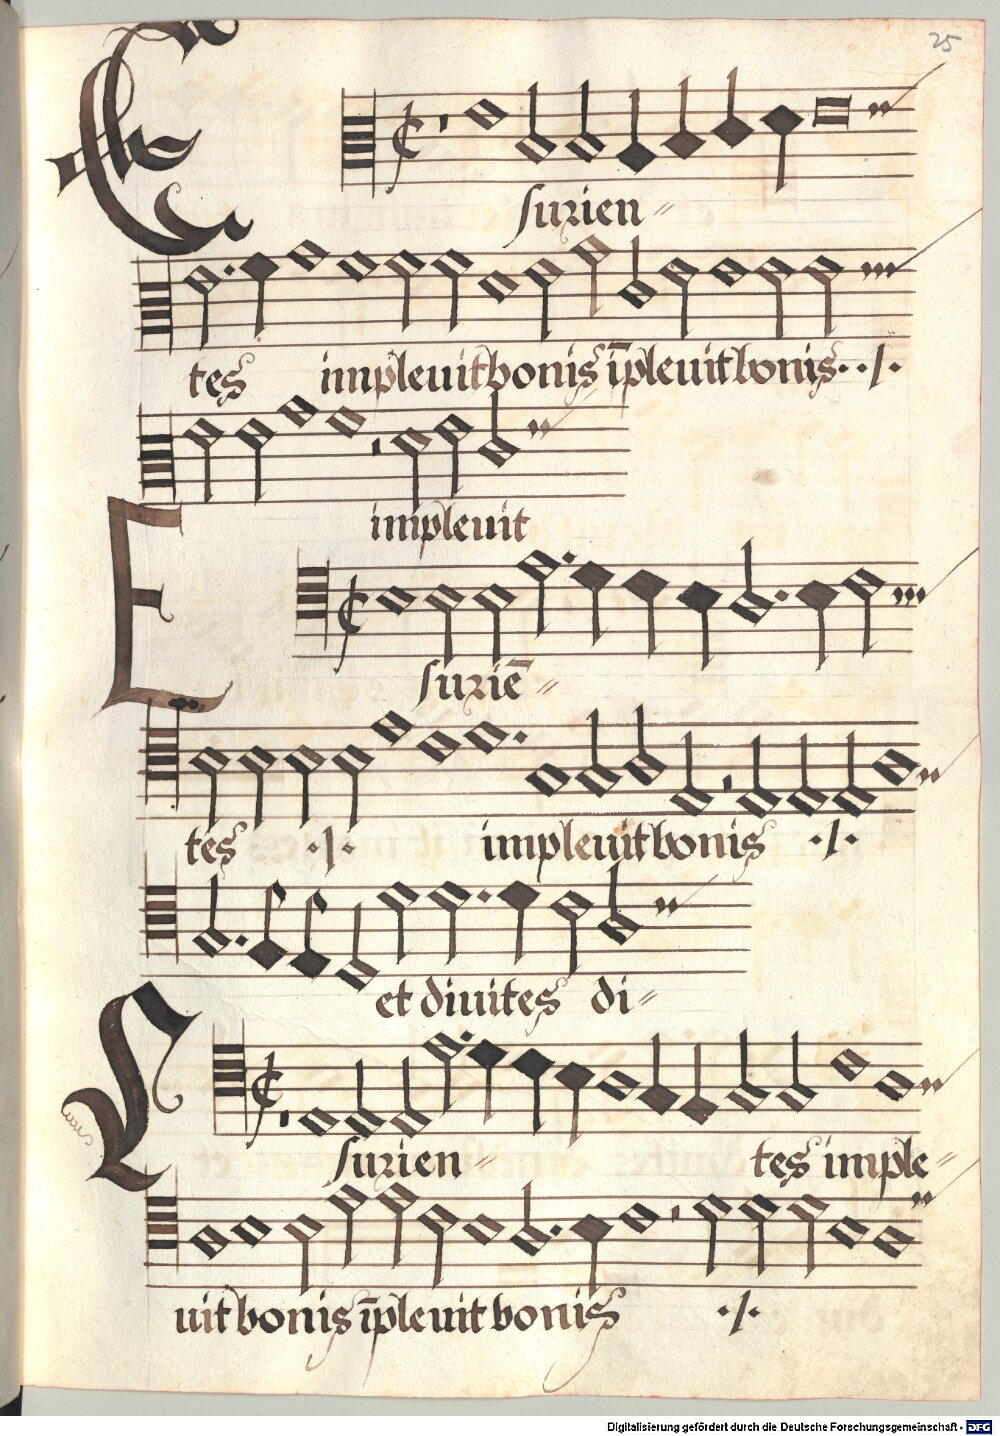 25
E
surien〃
tes impleuit bonis īpleuit bonis · ·/·
impleuit
E
suriē〃
tes ·/· impleuit bonis ·/·
et diuites di〃
E
surien〃 tes imple〃
uit bonis īpleuit bonis ·/·
Digitalisierung gefördert durch die Deutsche Forschungsgemeinschaft - DFG